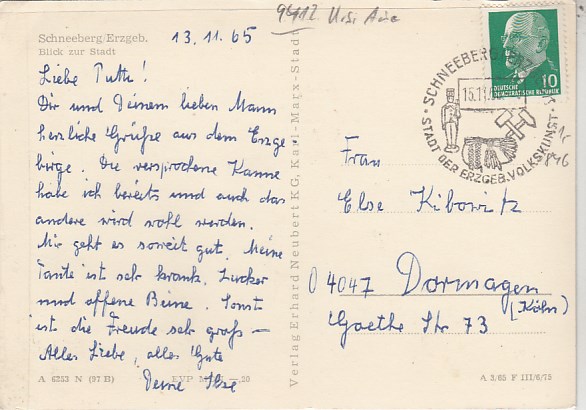 Schneeberg/Erzgeb.
Blick zur Stadt
13.11.65
Liebe Putti!
Dir und Deinem lieben Mann
herzliche Grüße aus dem Erzge
birge. Die versprochene Kanne
habe ich bereits und auch das
andere wird wohl werden.
Mir geht es soweit gut. Meine
Tante ist sehr krank. Zucker
und offene Beine. Sonst
ist die Freude sehr groß –
Alles Liebe, alles Gute
Deine Ilse
A 6253 N (97 B) EVP M —,20
Verlag Erhard Neubert KG, Karl-Marx-Stadt
9412
DEUTSCHE
DEMOKRATISCHE REPUBLIK 10
SCHNEEBERG
15.11.
STADT DER ERZGEB. VOLKSKUNST
Frau
Else Kibowitz
4047 Dormagen
(Köln)
Goethe Str 73
A 3/65 F III/6/75